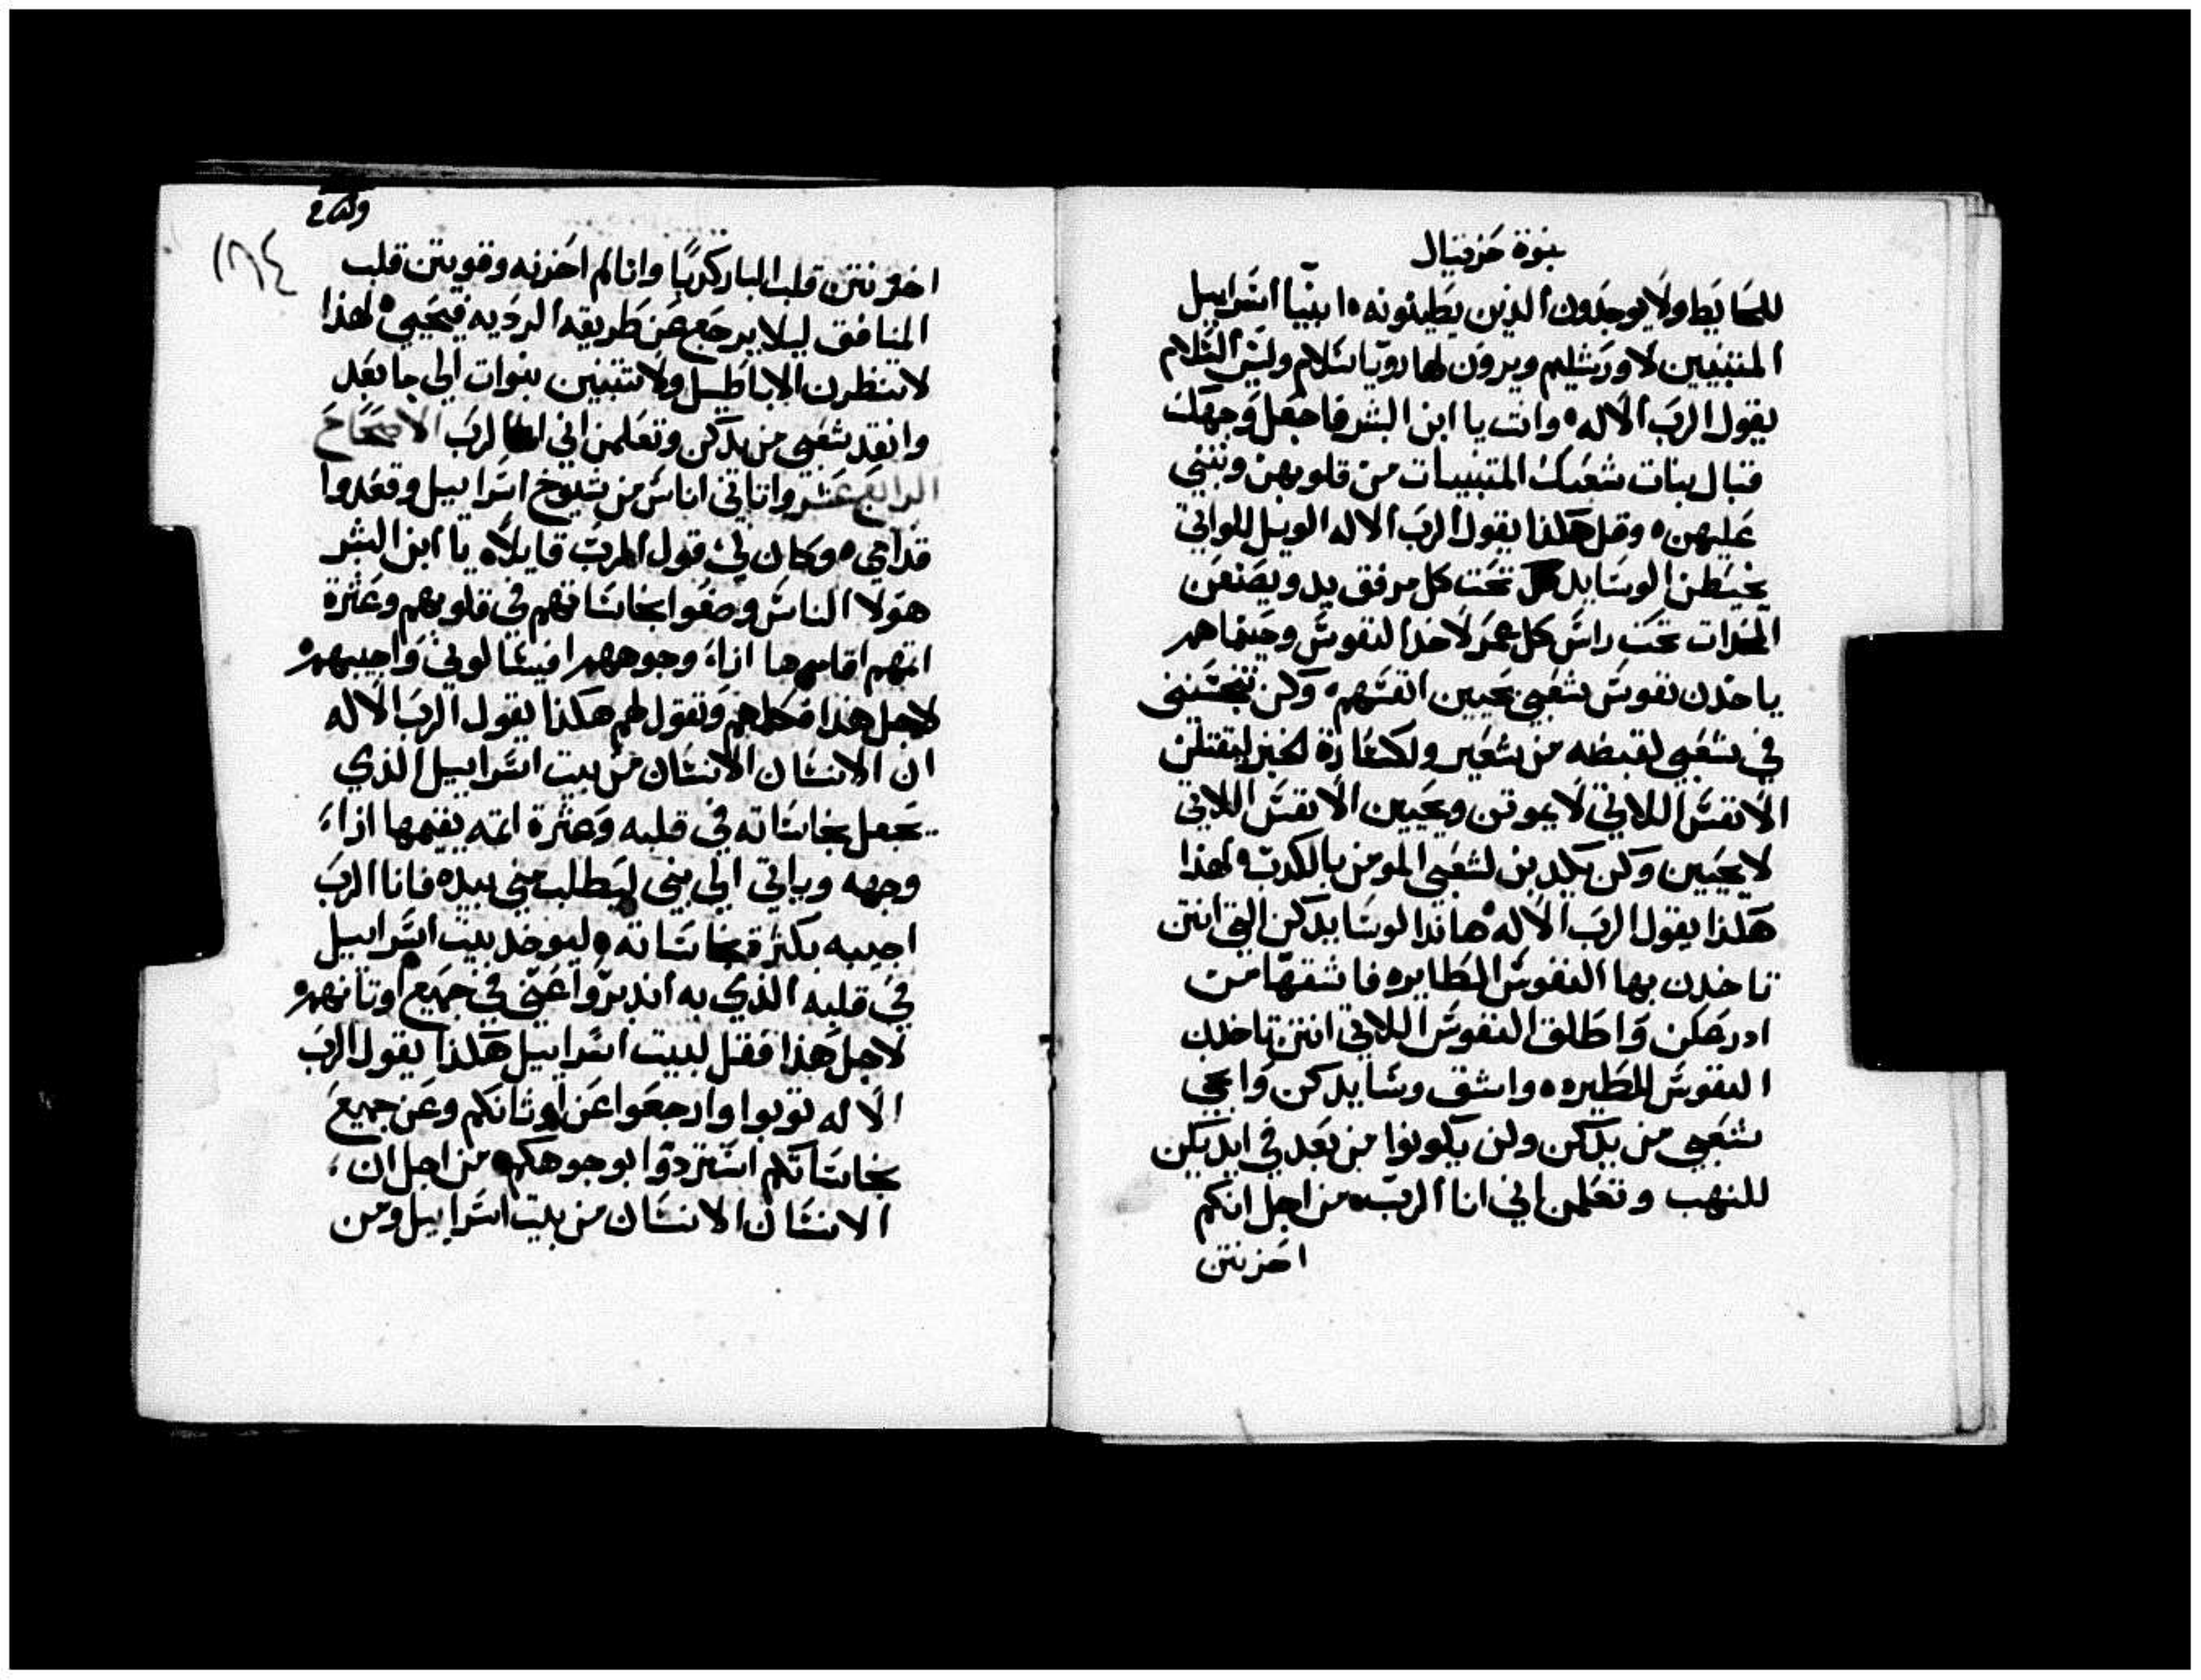 نبوة حزقيال
للحايط ولا يوجدون الذين يطينونه ٥ انبيا اسراييل
المتنبيين لاورشليم ويرون لها رويا سلام وليس السلام
يقول الرب الاله ٥ وانت يا ابن البشر فاجعل وجهك
قبال بنات شعبك المتنبيات من قلوبهن وتنبي
عليهن ٥ وقل هكذا يقول الرب الاله الويل للواتي
يخيطن الوسايد تحت كل مرفق يد ويصنعن
المخدات تحت راس كل عمر لاخذ النفوس وحينما هم
ياخدن نفوس شعبي يحيين انفسهم ٥ وكن تنجسنني
في شعبي لقبضه من شعير ولكسارة لخبز ليقتلن
الانفس اللاتي لا يموتن ويحيين الانفس اللاتي
لا يحيين وكن يكدبن لشعبي المومن بالكدب ٥ لهذا
هكذا يقول الرب الاله ٥ هاندا لوسايدكن التي انتن
تاخدن بها النفوس الطايره فاشقها من
ادرعكن واطلق النفوس اللاتي انتن تاخدن
النفوس للطيره ٥ واشق وسايدكن وانجي
شعبي من يدكن ولن يكونوا من بعد في ايديكن
للنهب وتعلمن اني انا الرب ٥ من اجل انكم
احزنتن
١٨٤
احزنتن قلب البار كدبًا وانا لم احزنه وقويتن قلب
المنافق ليلا يرجع عن طريقه الرديه فيحيي ٥ لهذا
لا تنظرن الاباطيل ولا تتنبين نبوات الي ما بعد
وانقد شعبي من يدكن وتعلمن اني انا الرب الاصحاح
الرابع عشر واتاني اناس من شيوخ اسراييل وقعدوا
قدامي ٥ وكان لي قول الرب قايلاً ٥ يا ابن البشر
هولا الناس وضعوا نجاساتهم في قلوبهم وعثرة
اثمهم اقاموها ازاء وجوههم افيسالوني واجيبهم ٥
لاجل هذا فكلمهم وتقول لهم هكذا يقول الرب الاله
ان الانسان الانسان من بيت اسراييل الذي
يجعل نجاساته في قلبه وعثرة اثمه يقيمها ازاء
وجهه وياتي الي نبي ليطلب مني بيده فانا الرب
اجيبه بكثرة نجاساته ٥ ليوخد بيت اسراييل
في قلبه الذي به اندبروا عني في جميع اوثانهم ٥
لاجل هذا فقل لبيت اسراييل هكذا يقول الرب
الاله توبوا وارجعوا عن اوثانكم وعن جميع
نجاساتكم استردوا بوجوهكم ٥ من اجل ان
الانسان الانسان من بيت اسراييل ومن